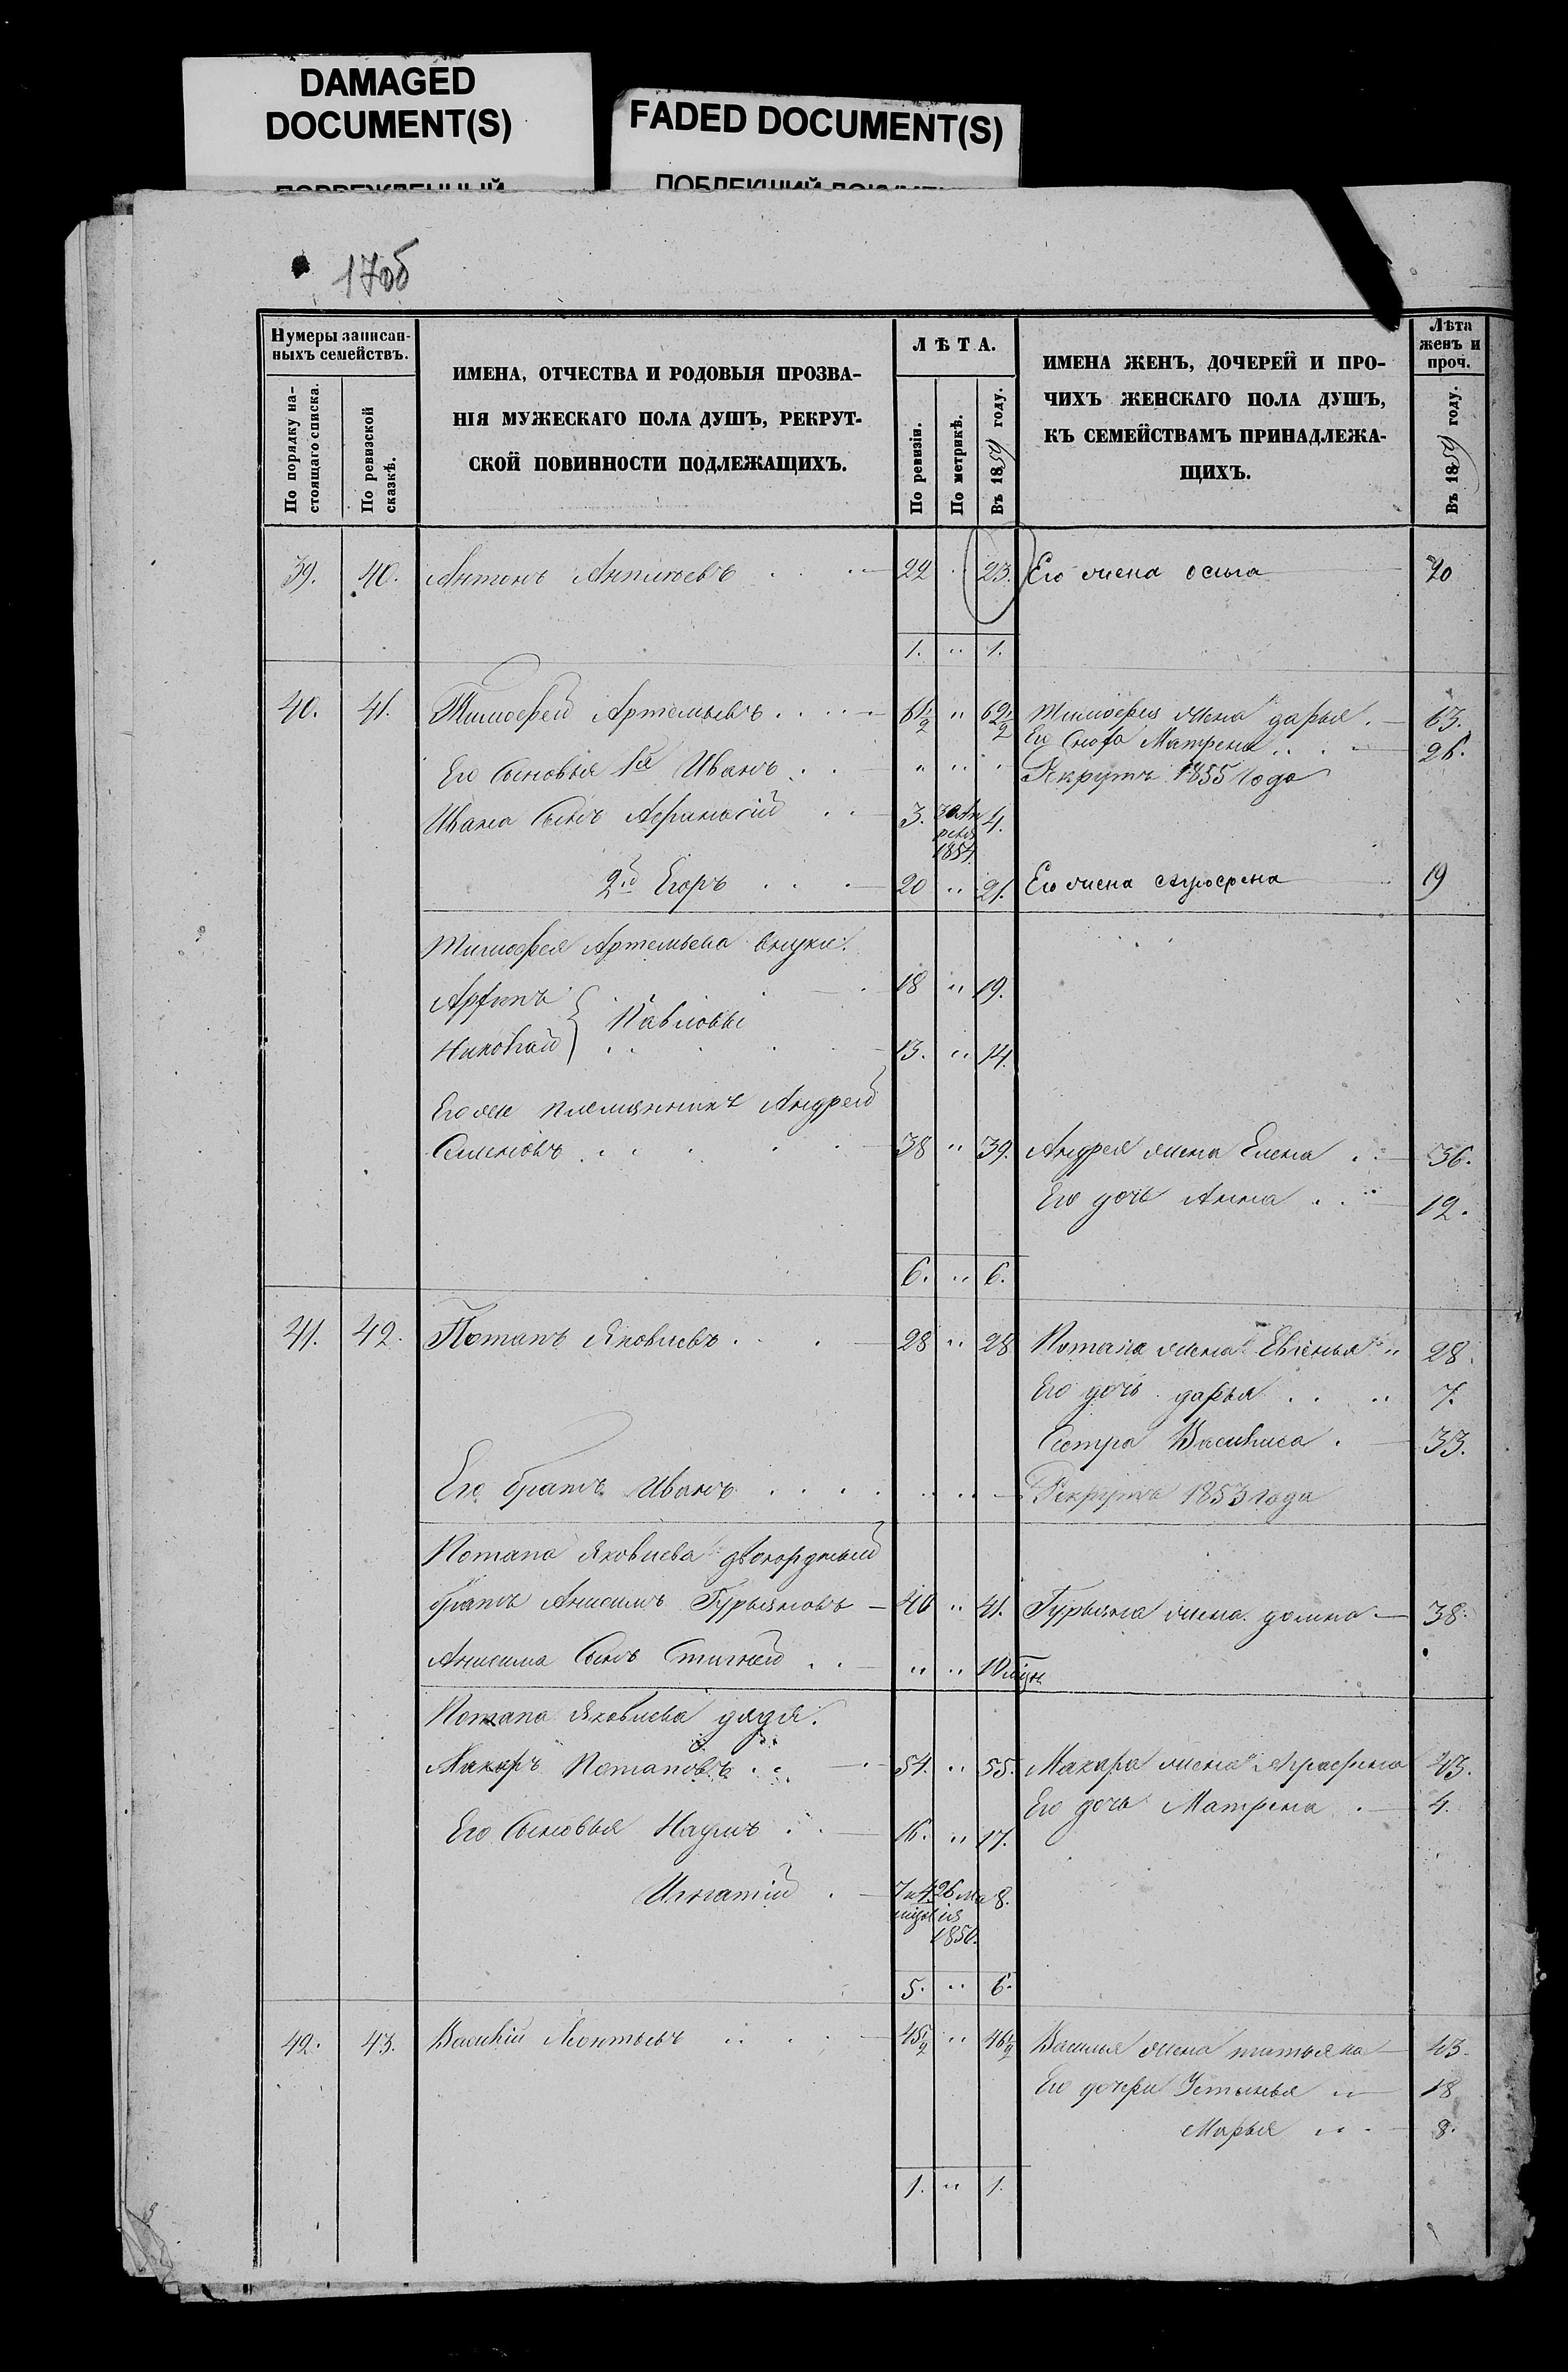 DAMAGED
DOCUMENT(S)
FADED DOCUMENT(S)
ПОВРЕЖДЕННЫЙ
ПОБЛЕКШИЙ
17об
Нумеры записан-
ныхъ семействъ.
По порядку на-
стоящаго списка.
По ревизской
сказкѣ.
ИМЕНА, ОТЧЕСТВА И РОДОВЫЯ ПРОЗВА-
НІЯ МУЖЕСКАГО ПОЛА ДУШЪ, РЕКРУТ-
СКОЙ ПОВИННОСТИ ПОДЛЕЖАЩИХЪ.
ЛѢТА.
По ревизіи.
По метрикѣ.
Въ 1859 году.
ИМЕНА ЖЕНЪ, ДОЧЕРЕЙ И ПРО-
ЧИХЪ ЖЕНСКАГО ПОЛА ДУШЪ,
КЪ СЕМЕЙСТВАМЪ ПРИНАДЛЕЖА-
ЩИХЪ.
Лѣта
женъ и
проч.
Въ 1859 году.
39. 40. Антонъ 22 23. Его жена 20
1. " 1.
40. 41. Тимофей Артемьевъ 61½ " 62½ Тимофея жена дарья 63.
Ея Сноха Матрена 26.
Его Сыновья 1й Иванъ " " " Рекрутъ 1855 года
Ивана Сынъ Афанасій 3. 30 Ап 4.
реля
1854.
2й Егоръ 20 " 21. Его жена 19
Тимофея Артемьева внуки:
18 " 19.
Николай } Павловы 13. " 14.
Его же племянникъ Андрей
Семеновъ 38 " 39. Андрея жена Елена 36.
Его дочь Анна 12.
6. " 6.
41. 42. Потапъ Яковлевъ 28 " 28 Потапа жена Евгенья " 28.
Его дочь дарья 7.
Сестра Василиса 33.
Его братъ Иванъ Рекрутъ 1853 года
Потапа Яковлева двоюродный
братъ Анисимъ Гурьяновъ 40 " 41. Гурьяна жена домна 38.
Анисима Сынъ " "
Потапа Яковлева дядя.
Макаръ Потаповъ 54. " 55. Макара жена Аграфена 43.
Его дочь Матрена 4.
Его Сыновья Наумъ 16. " 17.
Игнатій 7 и 4 26 Ма 8.
1850.
5. " 6.
42. 43. Василій Леонтьевъ 45½ " 46½ Василья жена татьяна 43.
Его дочери Устинья " 18
Марья 8.
1. " 1.